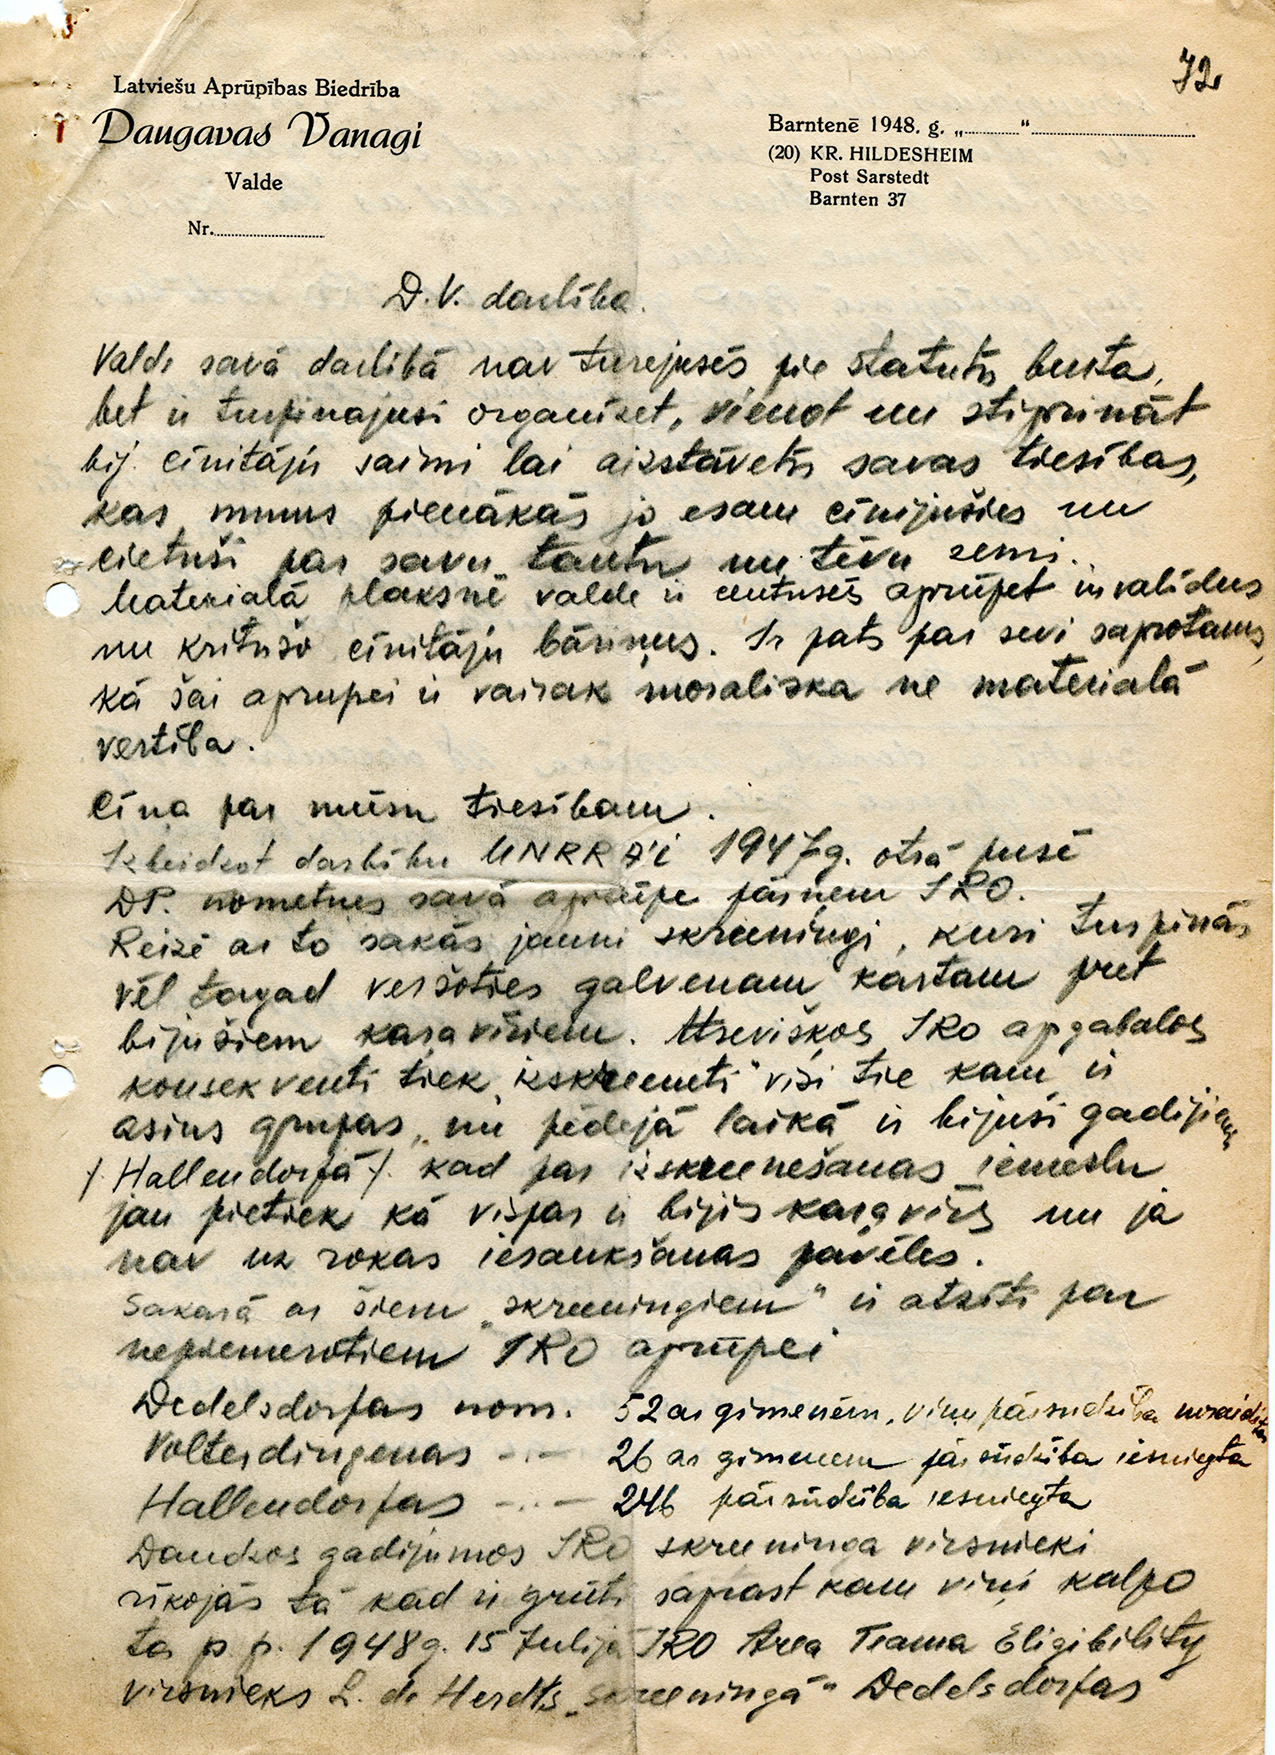 72
Latviešu Aprūpības Biedrība
Daugavas Vanagi
Valde
Nr.
Barntenē 1948. g. „ “
(20) KR. HILDESHEIM
Post Sarstedt
Barnten 37
D.V. darbība.
Valde savā darbibā nav turejusēs pie statutu burta,
bet ir turpinajusi organizet, vienot un stiprināt
bij. cīnitāju saimi lai aizstāvetu savas tiesības,
kas mums pienākās jo esam cīnijušies un
cietuši par savu tautu un tēvu zemi.
Materialā plaksnē valde ir centusēs aprūpet invalīdus
un kritušo cīnitāju bāriņus. Ir pats par sevi saprotams,
kā šai aprupei ir vairak moraliska ne materialā
vertība.
Cīna par mūsu tiesībam.
Izbeidzot darbību UNRRA'i 1947g. otrā pusē
DP. nometnes savā aprūpe pārņem IRO.
Reizē ar to sakās jauni skreeningi, kuri turpinās
vēl tagad veršoties galvenam kārtam pret
bijušiem karavīriem. Atseviškos IRO apgabalos
konsekventi tiek „izskreeneti" visi tie kam ir
asins grupas, un pēdejā laikā ir bijuši gadijieni
/. Hallendorfā /. kad par izskreenešanas iemeslu
jau pietiek kā vispar ir bijis karavīrs un ja
nav uz rokas iesaukšanas pavēles.
Sakarā ar šiem „skreeningiem" ir atzīti par
nepiemerotiem IRO aprūpei
Dedelsdorfas nom. 52 ar gimenēm, viņu pārsudzība noraidita
Volterdingenas -..- 26 ar gimenem pārsūdzība iesniegta
Hallendorfas -..- 246 pārsūdzība iesniegta
Daudzos gadijumos IRO skreeninga virsnieki
rīkojās tā kad ir grūti saprast kam viņi kalpo
ta p.p. 1948g. 15 Julijā IRO Area Teama Eligibility
virsnieks L. de Herdts „screeningā" Dedelsdorfas